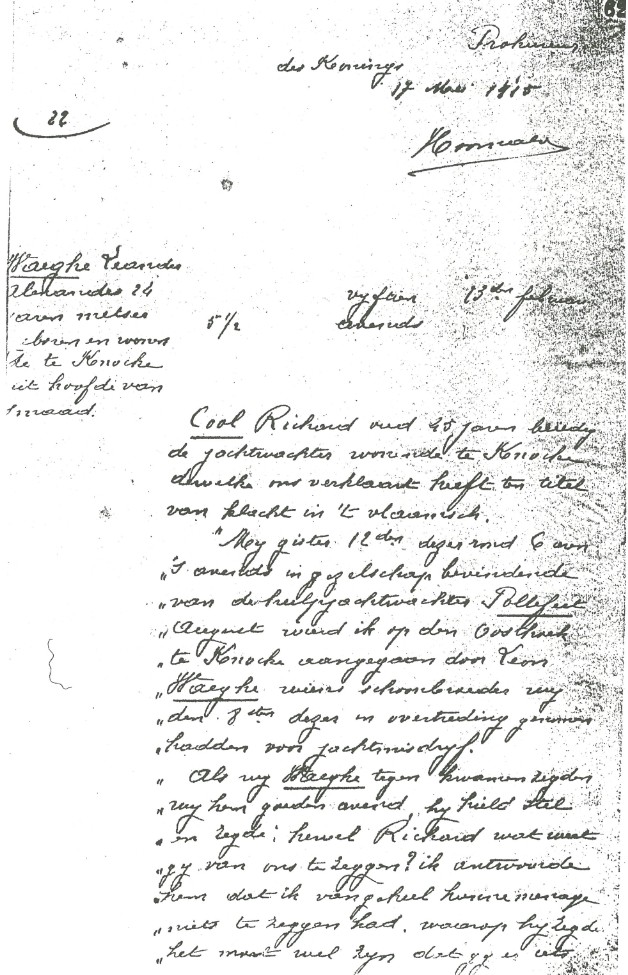 62
Prokureur
des Konings
17 Mars 1915
22
Waeghe Leander
Alexander 24
jaren metser
boren en woonen
de te Knocke
uit hoofde van
smaad.
vyftien 13den februari
5 1/2 avends
Cool Richard oud 45 jaren beedig
de jachtwachter wonende te Knocke
dewelke ons verklaart heeft ten titel
van klacht in 't vlaamsch.
"My gister 12den dezer rond 6 uren
"'s avends in gezelschap bevindende
"van de hulpjachtwachter Pollefeit
"August wierd ik op den Oosthoek
"te Knocke aangegaan door Leon
"Waeghe wiens schoonbroeder wy
"den 8sten dezer in overtreding genomen
"hadden voor jachtmisdryf.
" Als wy Waeghe tegen kwamen zegden
"wy hem goeden avend, hy hield stil
"en zegde: hewel Richard wat weet
"gy van ons te zeggen? ik antwoorde
"hem dat ik van geheel hunne menage
"niets te zeggen had, waarop hy zegde
"het moet wel zyn dat gy er iets